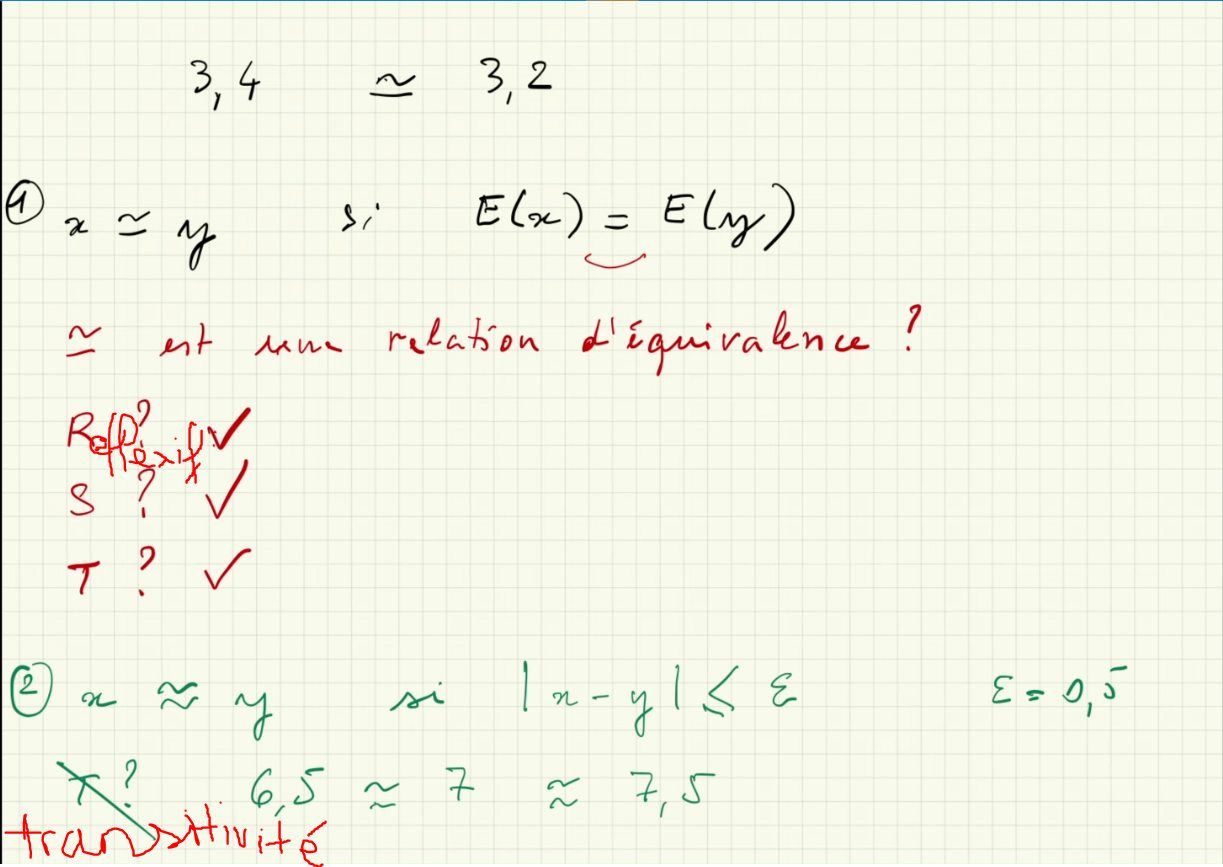 3,4 ≃ 3,2
① x ≃ y si E(x) = E(y)
≃ est une relation d'équivalence ?
R ? Refléxif ✓
S ? ✓
T ? ✓
② x ≈ y si |x-y| ≤ ε ε = 0,5
T ? 6,5 ≈ 7 ≈ 7,5
transitivité